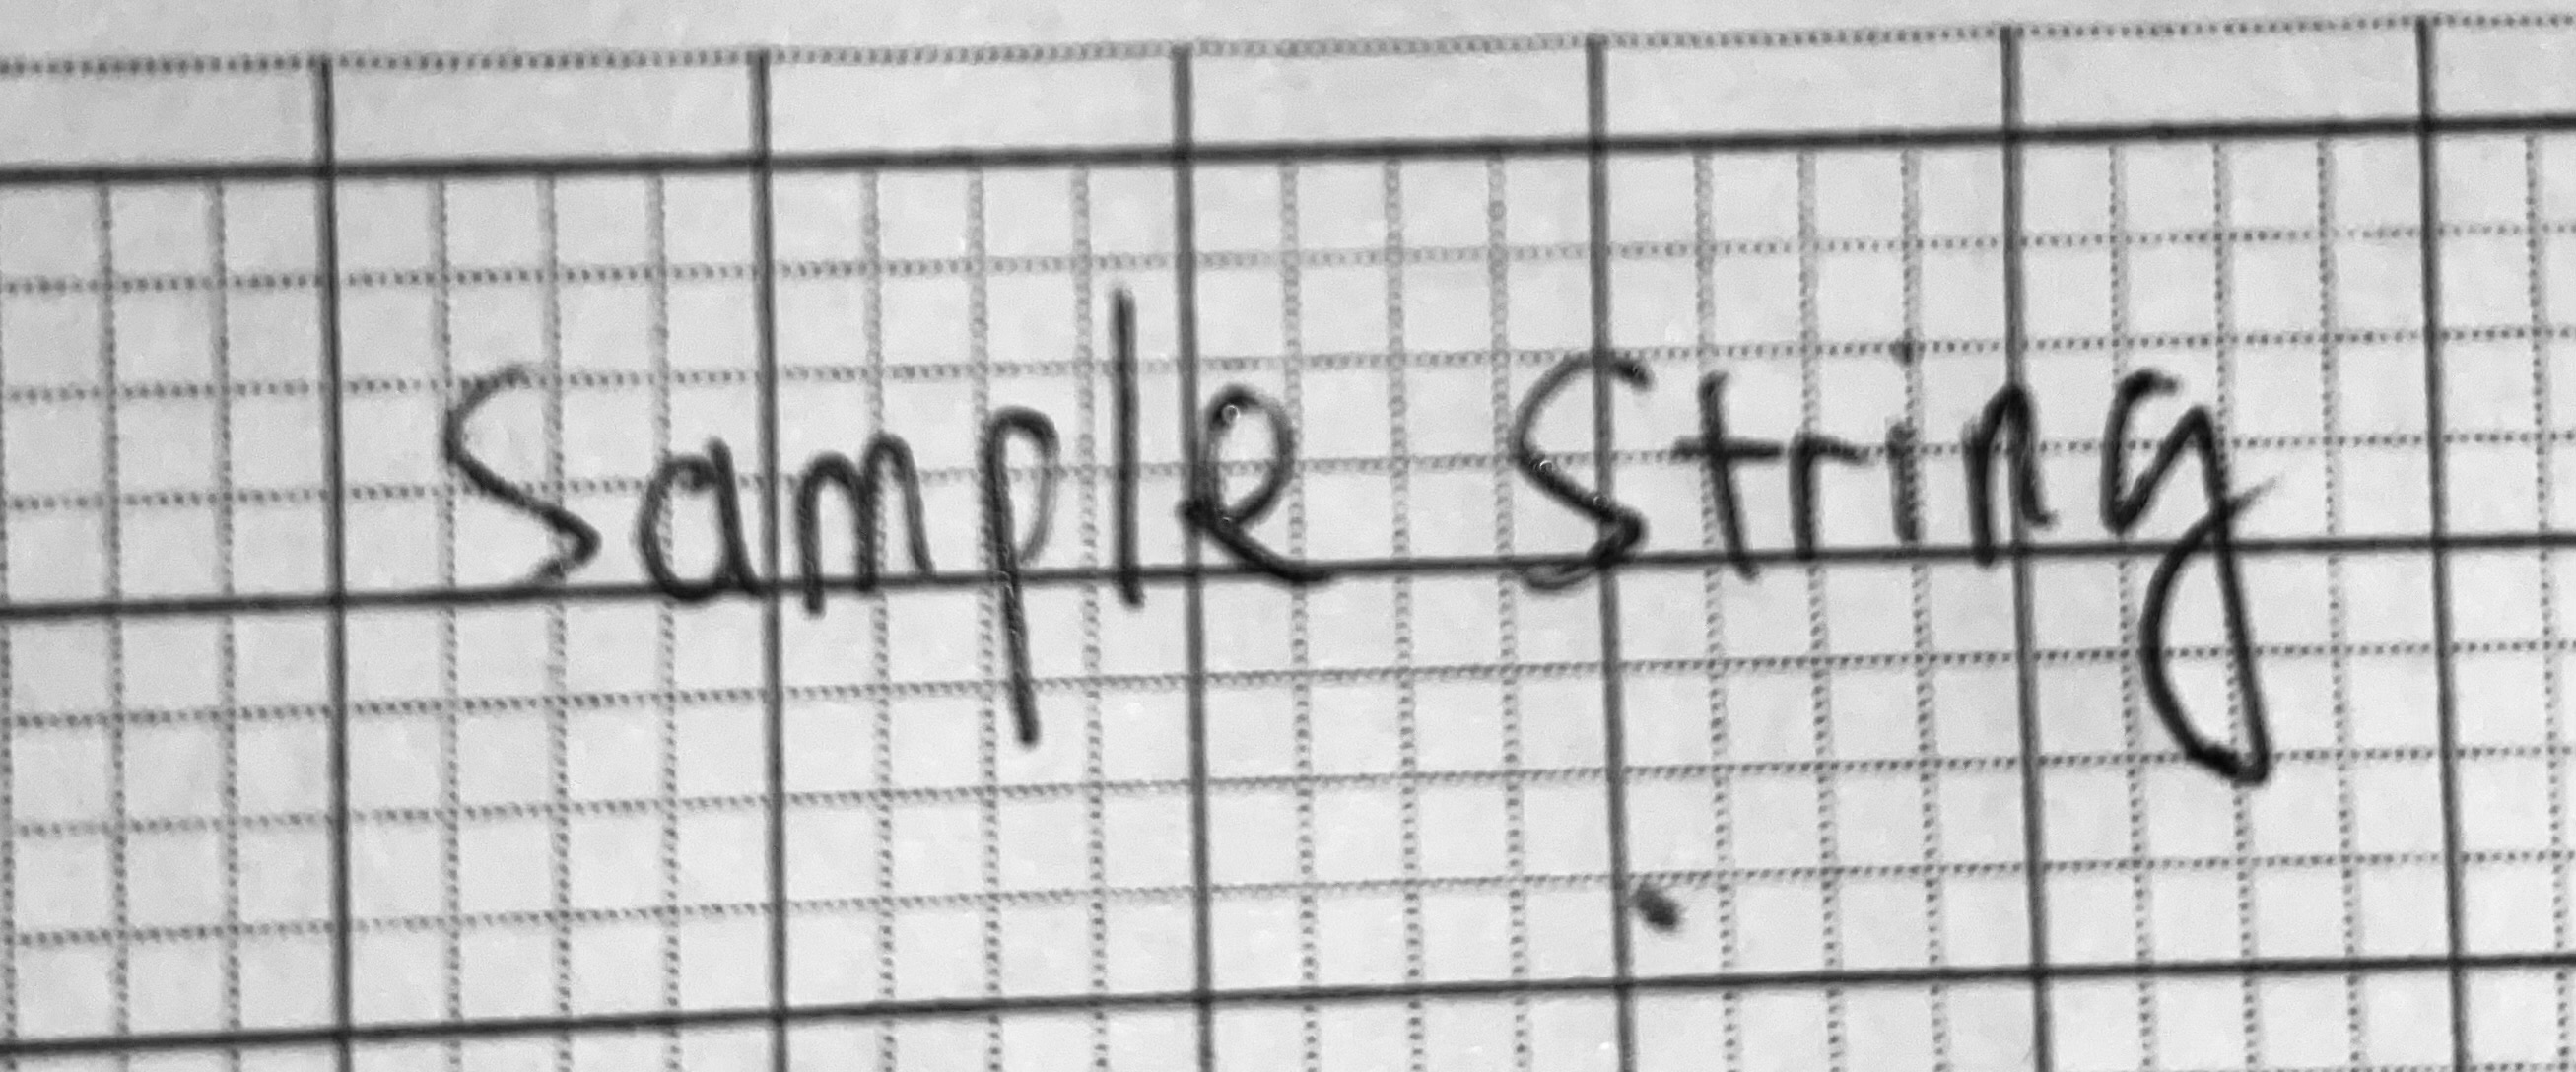 Sample String